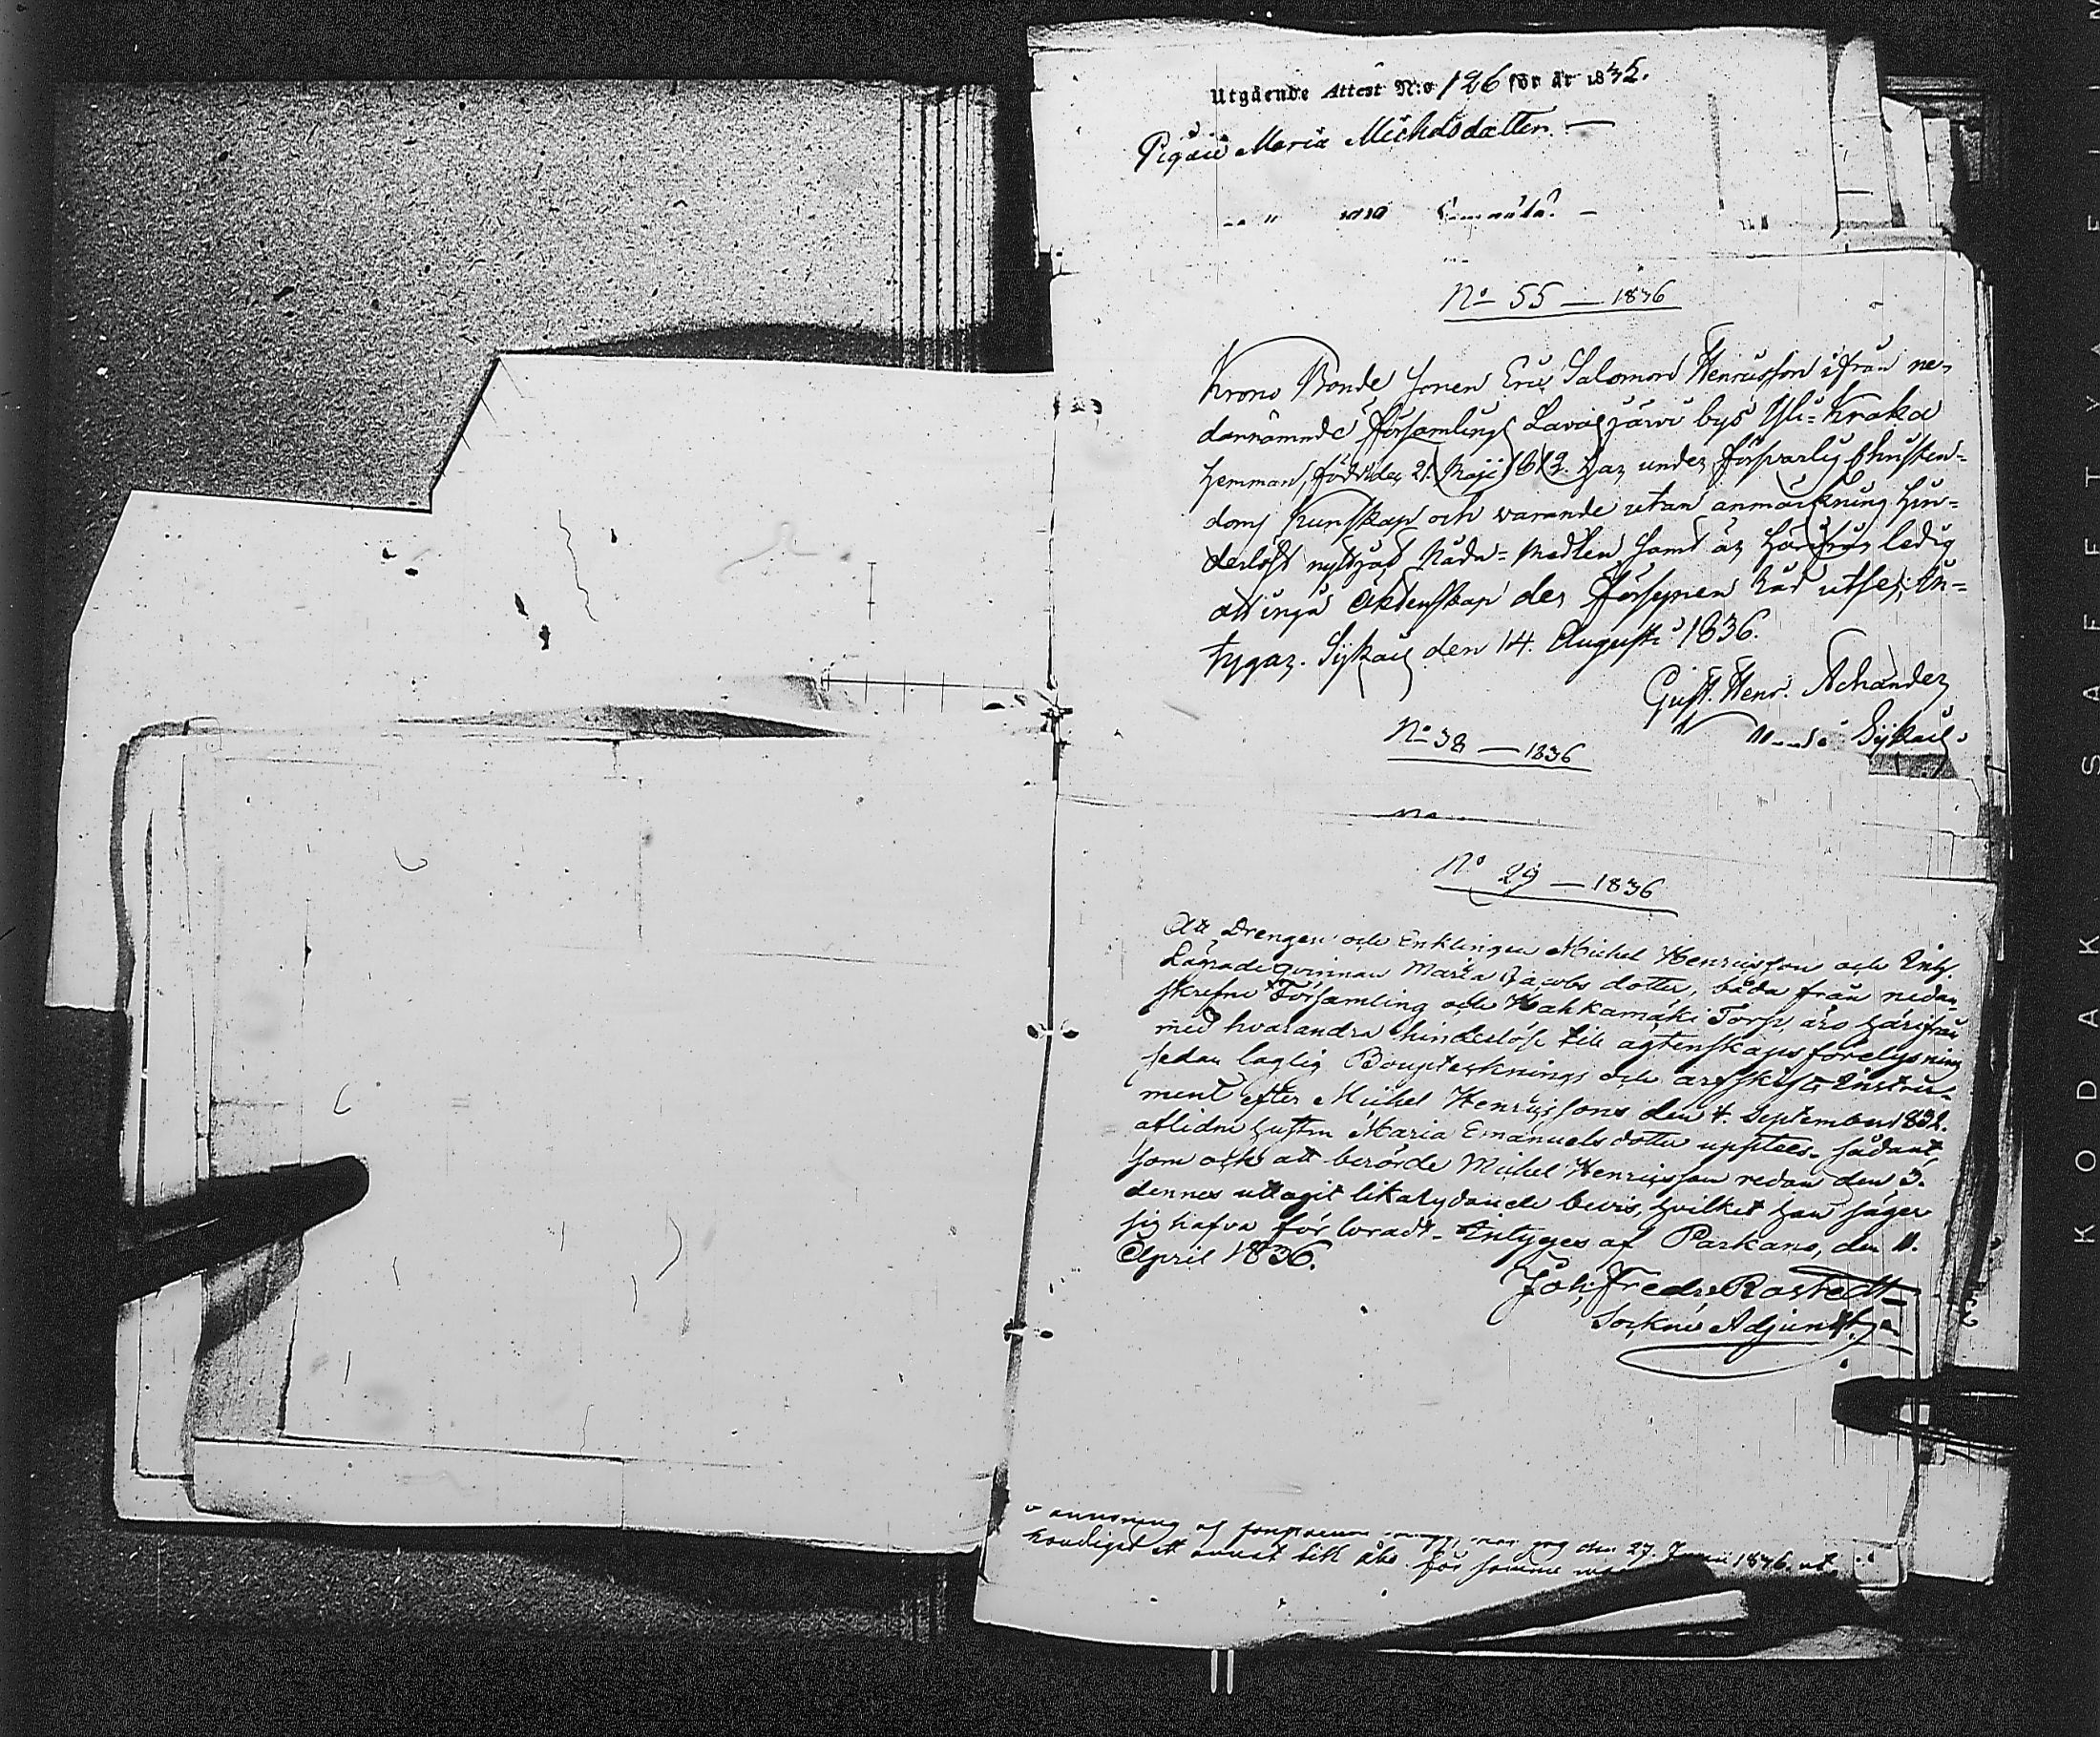 Utgående Attest N:o 126 för år 1835.
Pigan Maria Michelsdotter. —
No 55 — 1836
Krono Bonde Sonen Eric Salomon Henricsson ifrån ne-
dannämnde Församlings Lavasjärvi bys Yli-Kraka
Hemman, född den 21. Maji 1812. Har under försvarlig Christen-
doms kunskap och varande utan anmärkning hin-
derlöst nyttjat Nåda-Medlen samt är härifrån ledig
att ingå Äktenskap der Försynen kär utser; In-
tygar. Sijkais den 14. Augusti 1836.
Gust. Henr. Achander
i Sijkais.
No 38 — 1836
No 29 — 1836
Att Drengen och Enklingen Michel Henricsson och Inh.
Lägradeqvinnan Maria Jacobsdotter, båda från nedan-
skrefne Församling och Kahkamäki Torp, äro härifrån
med hvarandra hinderlöse till ägtenskaps förelysning
sedan laglig Bouptecknings och arfskifts Instru-
ment efter Michel Henricssons den 4. September 1832.
aflidne hustru Maria Emanuelsdotter upptees. sådant
som ock att berörde Michel Henricsson redan den 3.
dennes uttagit likalydande bevis, hvilket han säger
sig hafva förlorat. Intyges af Parkano, den 11.
April 1836.
Joh: Fredr: Rostedt
Sockne Adjunkt.
anvisning af jag den 27. Junii 1836. ut
händiget ett annat till Åbo. för samma
KODAK SAFETY